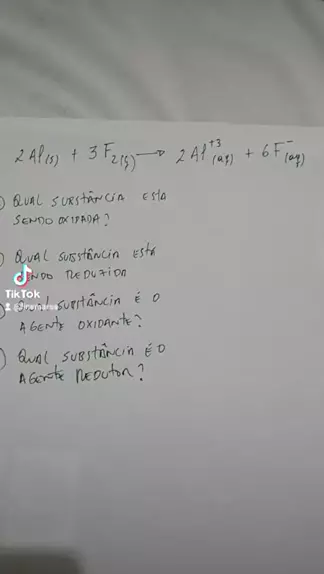 2Al(s) + 3F2(g) → 2Al+3(aq) + 6F-(aq)
) QUAL SUBSTÂNCIA ESTA
SENDO OXIDADA?
) QUAL SUBSTÂNCIA ESTA
ENDO REDUZIDA
TikTok
SUBSTÂNCIA É O
AGENTE OXIDANTE?
) QUAL SUBSTÂNCIA É O
AGENTE REDUTOR?